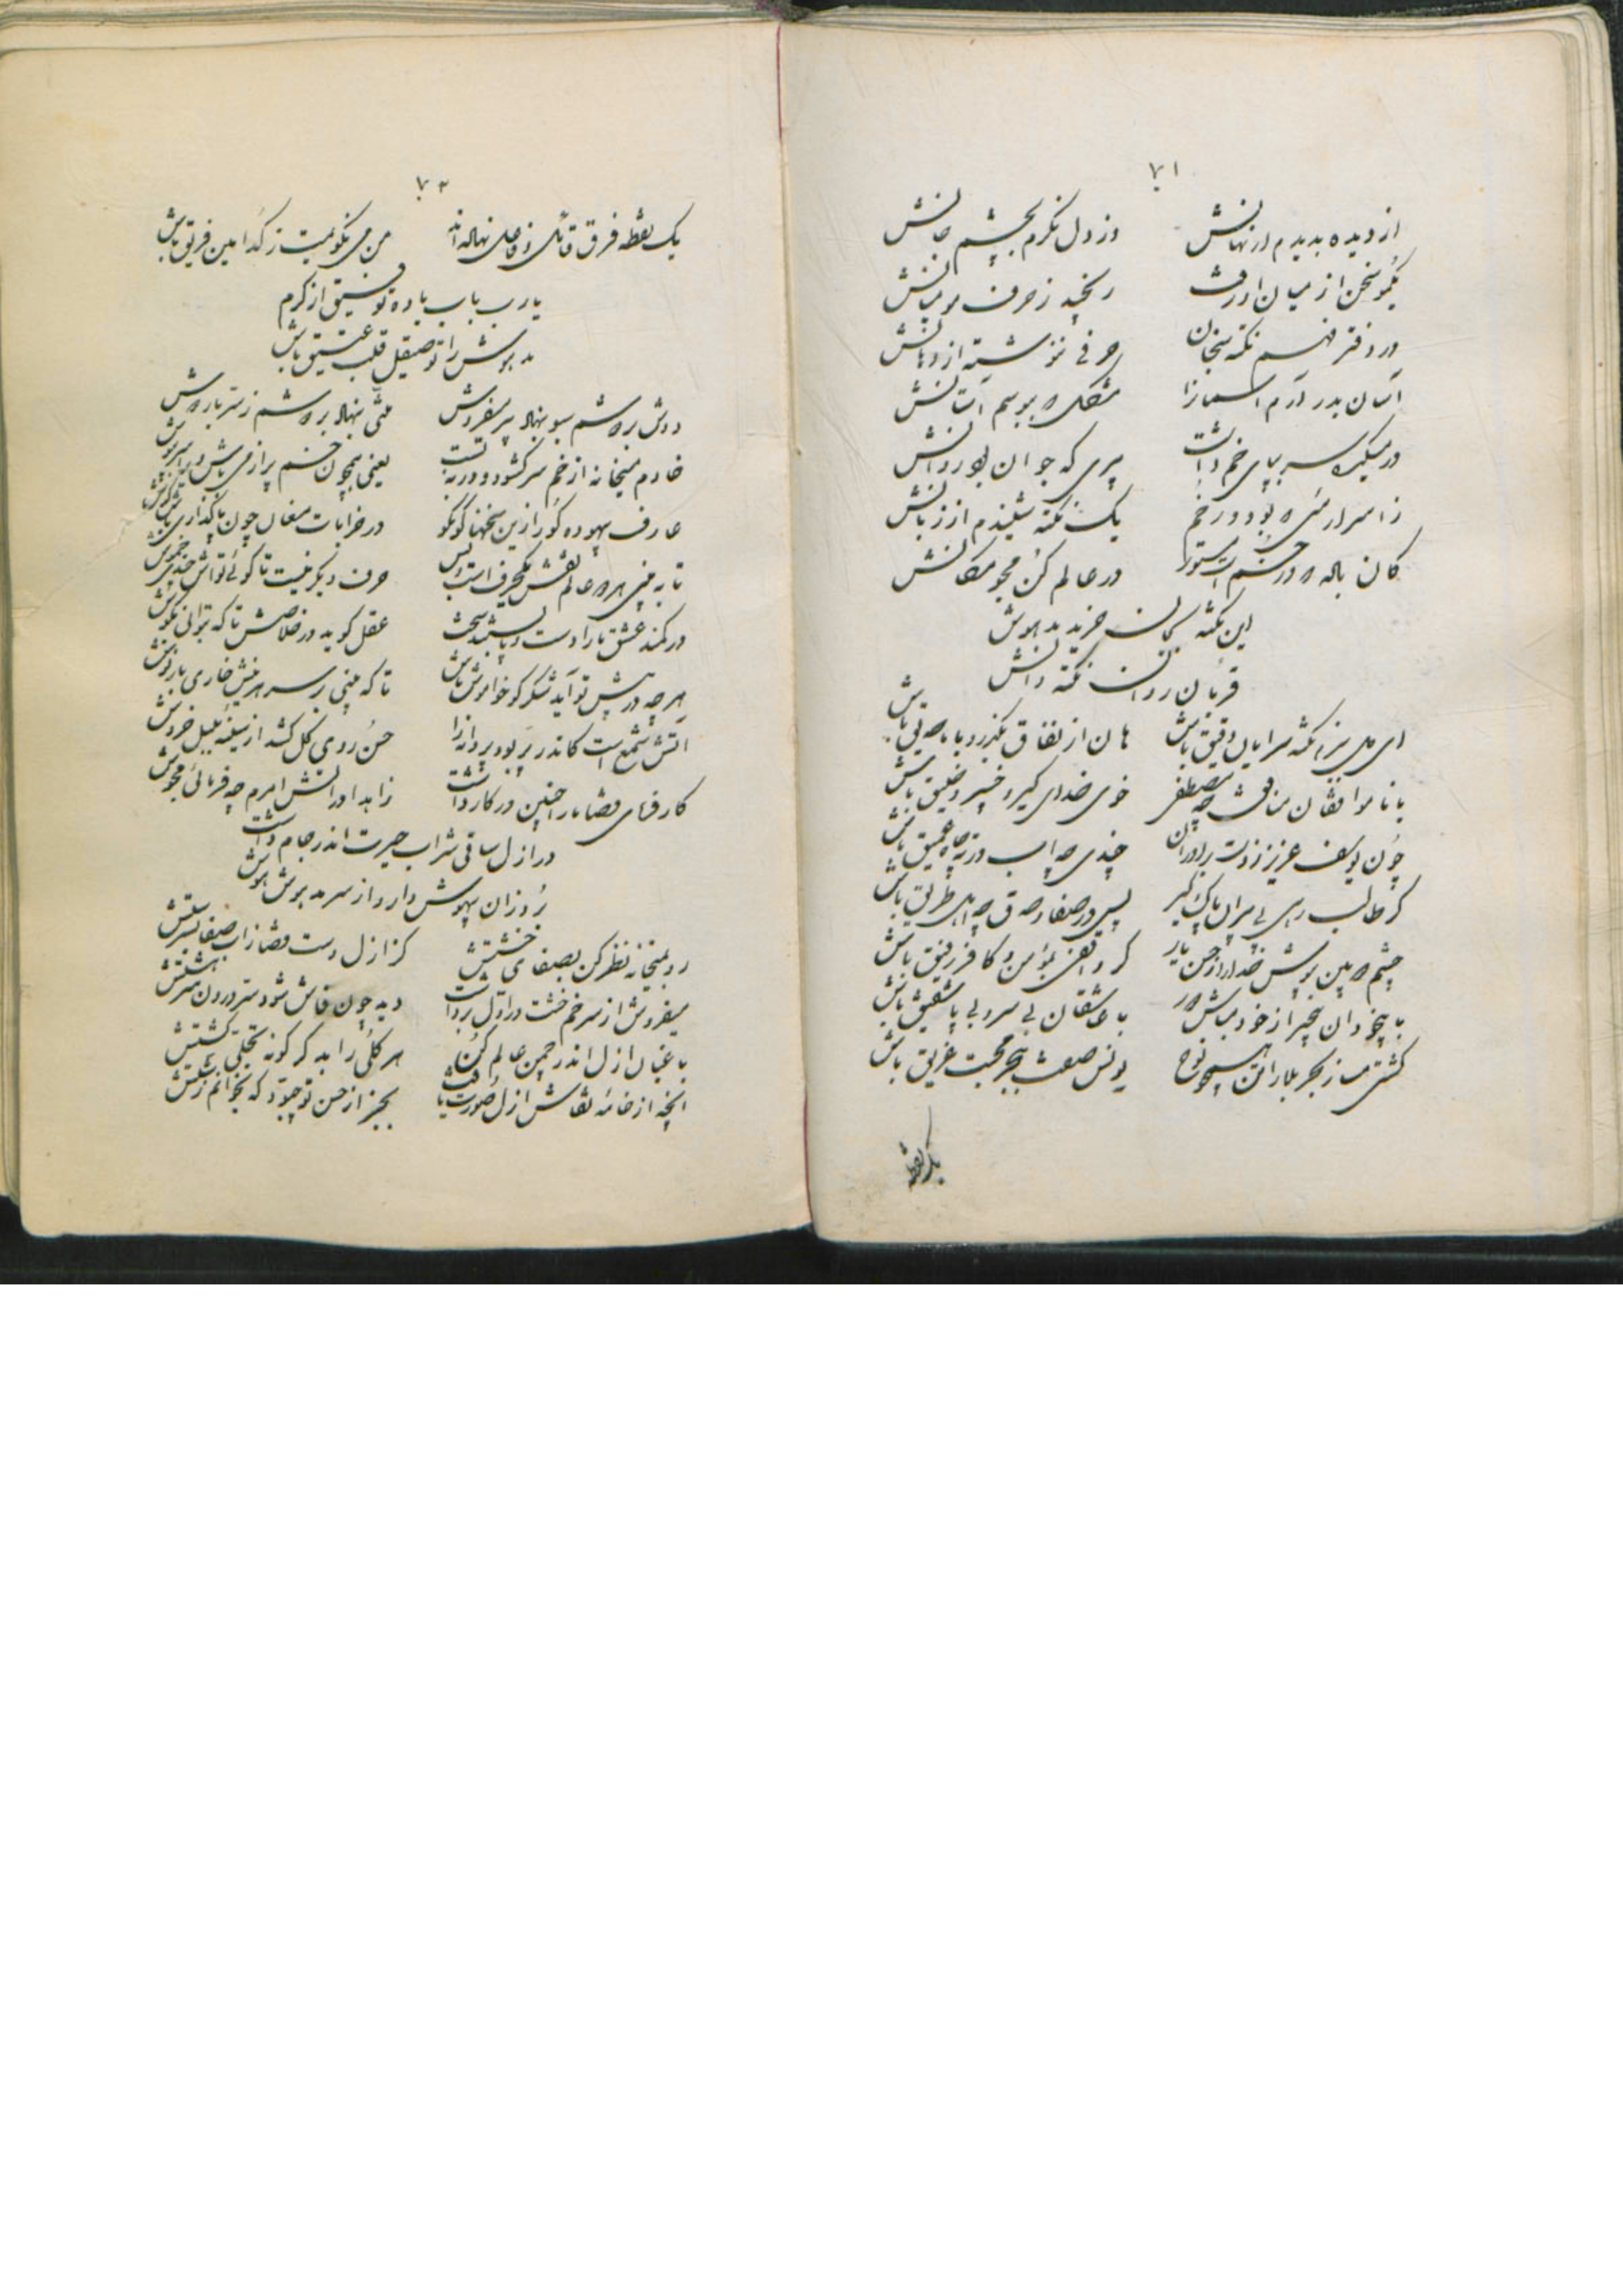 ۷۱
از دیده بدیدم ار نهانش وز دل نگرم بچشم جانش
یکمو سخن از میان او رفت رنجید ز حرف مو میانش
در دفتر فهم نکته سنجان حرفی ننوشته از دهانش
آسان بدر آرم آسمانرا مشکل که ببوسم آستانش
در میکده سر بپای خم داشت پیری که جوان بود روانش
ز اسرار که بود در خم یک نکته شنیدم از زبانش
کان باده که در خم است مستور در عالم کن مجو مکانش
این نکته بجان خرید مدهوش
قربان روان نکته دانش
ای دل بیا نکته سرایان دقیق باش هان از نفاق بگذر و با ما صدیق باش
با ناموافقان منافق چو مصطفی خوی خدای گیر و خلیق باش
چون یوسف عزیز ز دست برادران چندی چو آب در ته چاه عمیق باش
گر طالب رهی پی مردان پاک گیر پس در صفا و صدق چو اهل طریق باش
چشم بپوش خدا را ز حسن یار گر واقفی بمؤمن و کافر رفیق باش
با بیخودان بیخبر از خود مباش دور با عاشقان بی سر و بی پا شفیق باش
کشتی مساز بحر بلا را همچو نوح یونس صفت ببحر محبت غریق باش
یک نقطه
۷۲
یک نقطه فرق قاتل و قابل نهاده‌اند من می نگویمت ز کدامین فریق باش
یا رب بآب باده توفیق از کرم
مدهوش را تو صیقل قلب عتیق باش
دوش بر دوشم سبو بنهاد پیر میفروش منتی بنهاد بر دوشم ز سر بار دوش
خادم میخانه از خم سر گشود و دوره بست یعنی همچون خم پر از می باش و
عارف بیهوده گو را زین سخنها گو مگو در خرابات مغان چون پا گذاری
تا به بینی هر دو عالم نقش یکحرف است و بس حرف دیگر نیست تا گوئی تو باش خموش
در کمند عشق ما را دست و پا بستند سخت عقل گوید در خلاصش تا که بتوانی بکوش
هر چه در پیش تو آید شکر گو خاموش باش تا که بینی بر سر هر نیش خاری بار نوش
آتش شمع است کاندر پر بود پروانه را حسن روی گل کشد از سینه بلبل خروش
کارفرمای قضا ما را چنین در کار داشت زاهدا در آتش ام چه فرمائی مجوش
در ازل ساقی شراب حیرت اندر جام داشت
رو از آن بیهوش دارو از سر مدهوش هوش
رو بمیخانه نظر کن بصفای خشتش کز ازل دست قضا زآب صفا بسرشتش
میفروش از سر خم خشت در اول برداشت دید چون فاش شود سر درون بهشتش
باغبان ازل اندر چمن عالم کن هر گلی را بد گر گونه تجلی کشتش
آنچه از خامه نقاش ازل صورت یافت بجز از حسن تو چبود که بخوانم زشتش